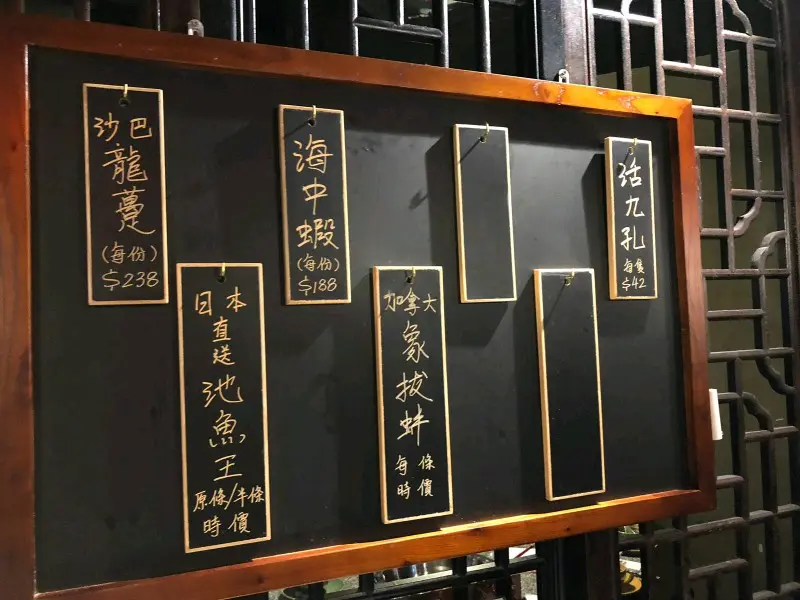 沙巴
龍躉
(每份)
$238
日本
直送
池魚王
原條/半條
時價
海中蝦
(每份)
$188
加拿大
象拔蚌
每條
時價
活九孔
每隻
$42